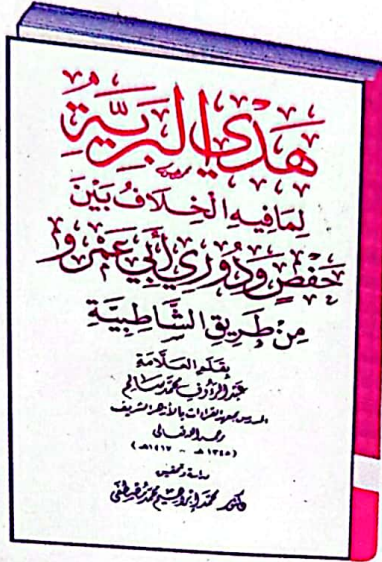 هَدْيُ البَرِيَّةِ
لِمَا فِيهِ الْخِلَافُ بَيْنَ
حَفْصٍ وَدُورِيِّ أَبِي عَمْرٍو
مِنْ طَرِيقِ الشَّاطِبِيَّةِ
بقلم العلّامة
عبد الرؤوف محمد سالم
المدرس بمعهد القراءات بالأزهر الشريف
رحمه الله تعالى
(١٣٤٥هـ - ١٤١٢هـ)
دراسة وتحقيق
دكتور محمد إبراهيم محمد مصطفى